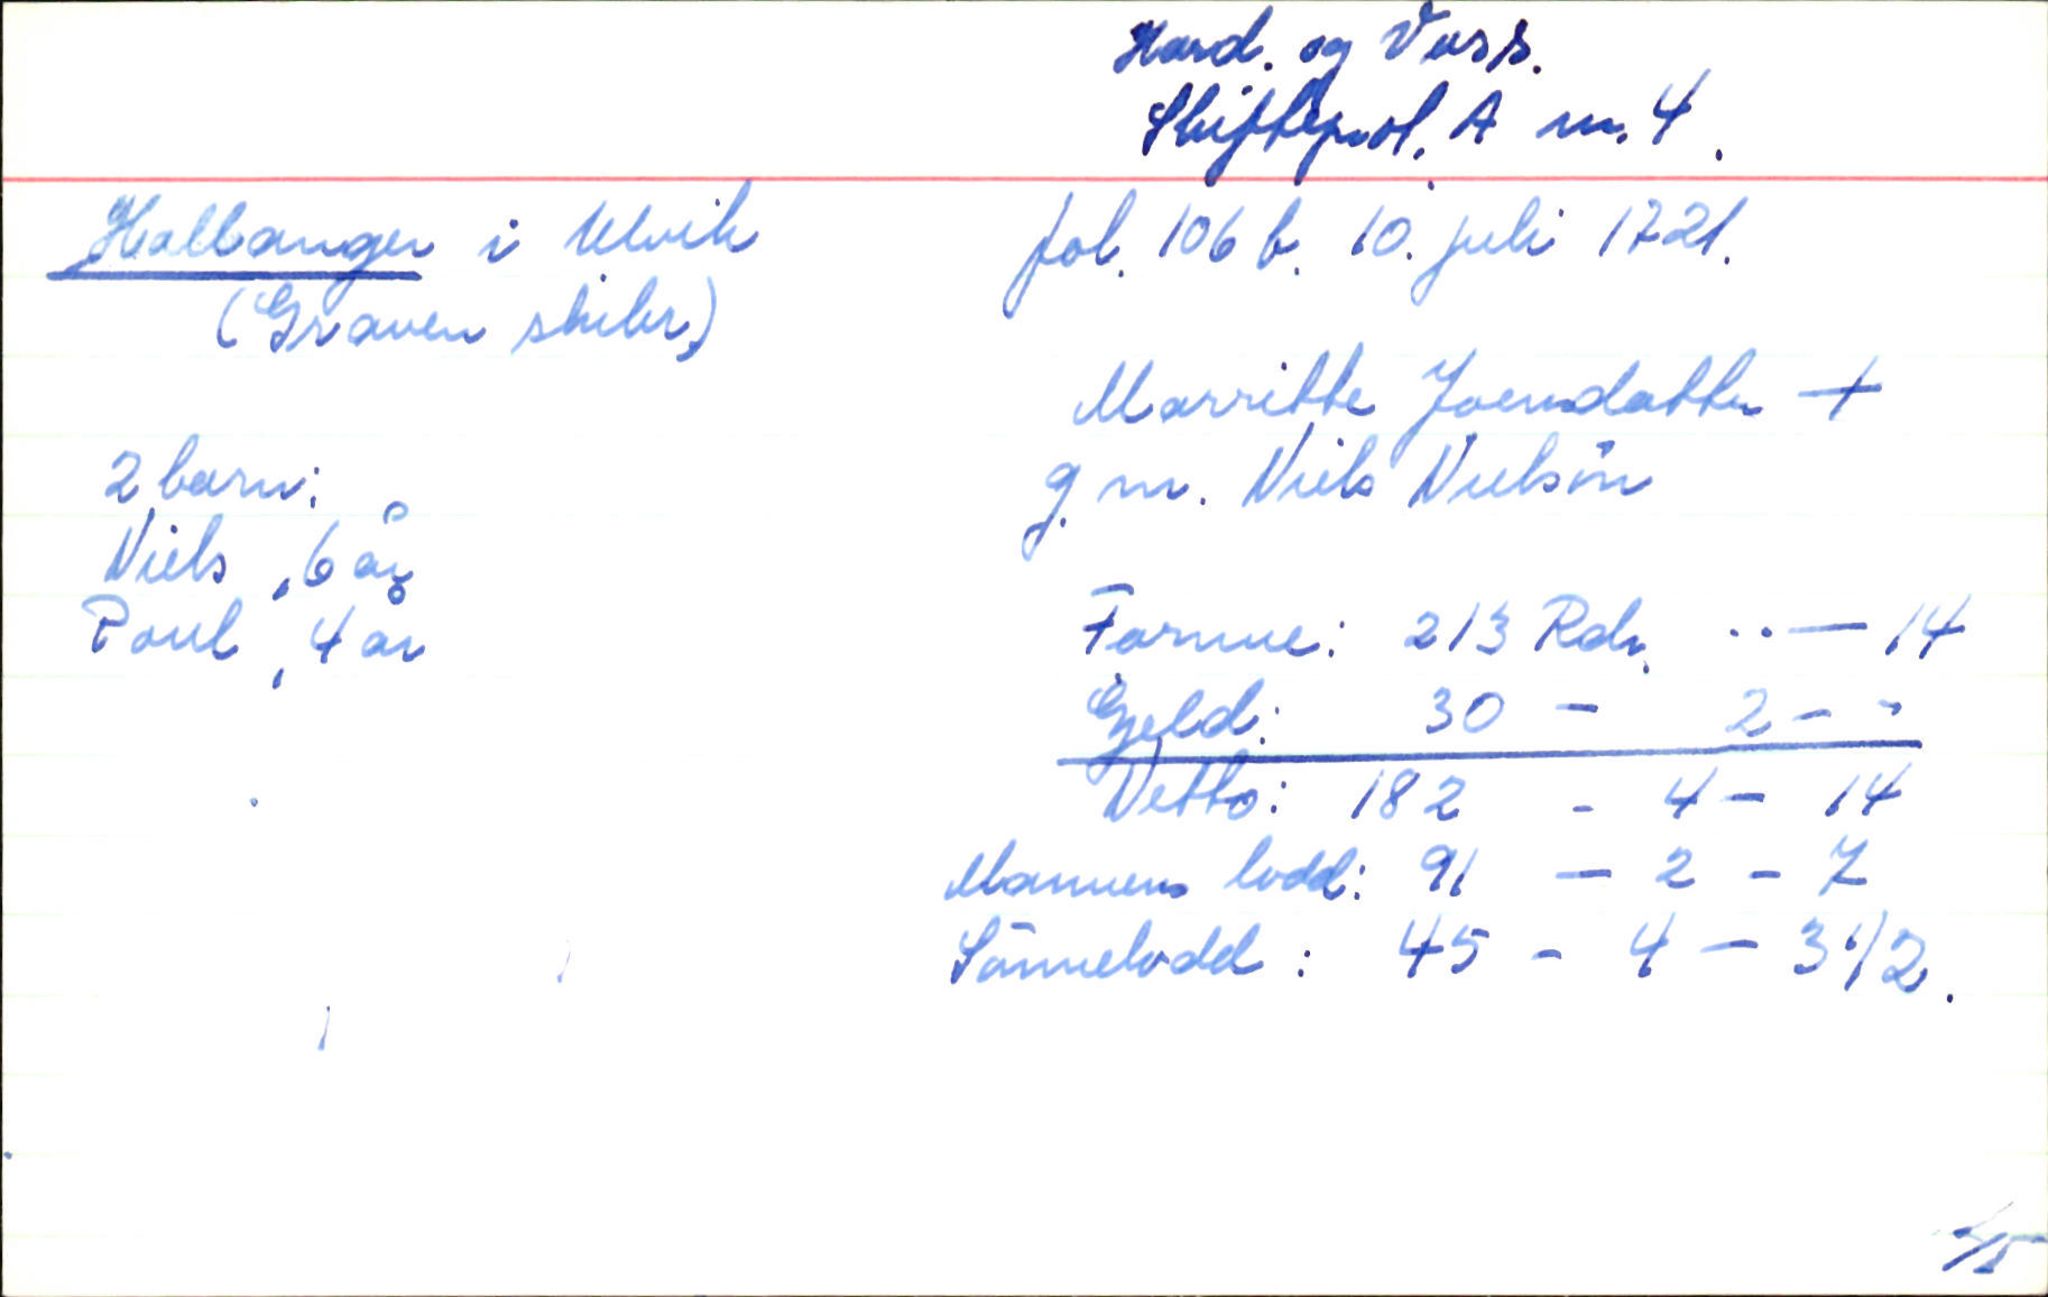 Hard. og Voss.
Skifteprot. A nr. 4.
Hallanger i Ulvik
(Graven skibr.)
fol. 106 b. 10. juli 1721.
Marritte Joensdatter +
g. m. Niels Nielsön
2 barn:
Niels, 6 år
Poul, 4 år
Formue: 213 Rdr. .. — 14
Gjeld: 30 - 2 - -
Netto: 182 - 4 - 14
Mannens lodd: 91 - 2 - 7
Sönnelodd: 45 - 4 - 3 1/2.